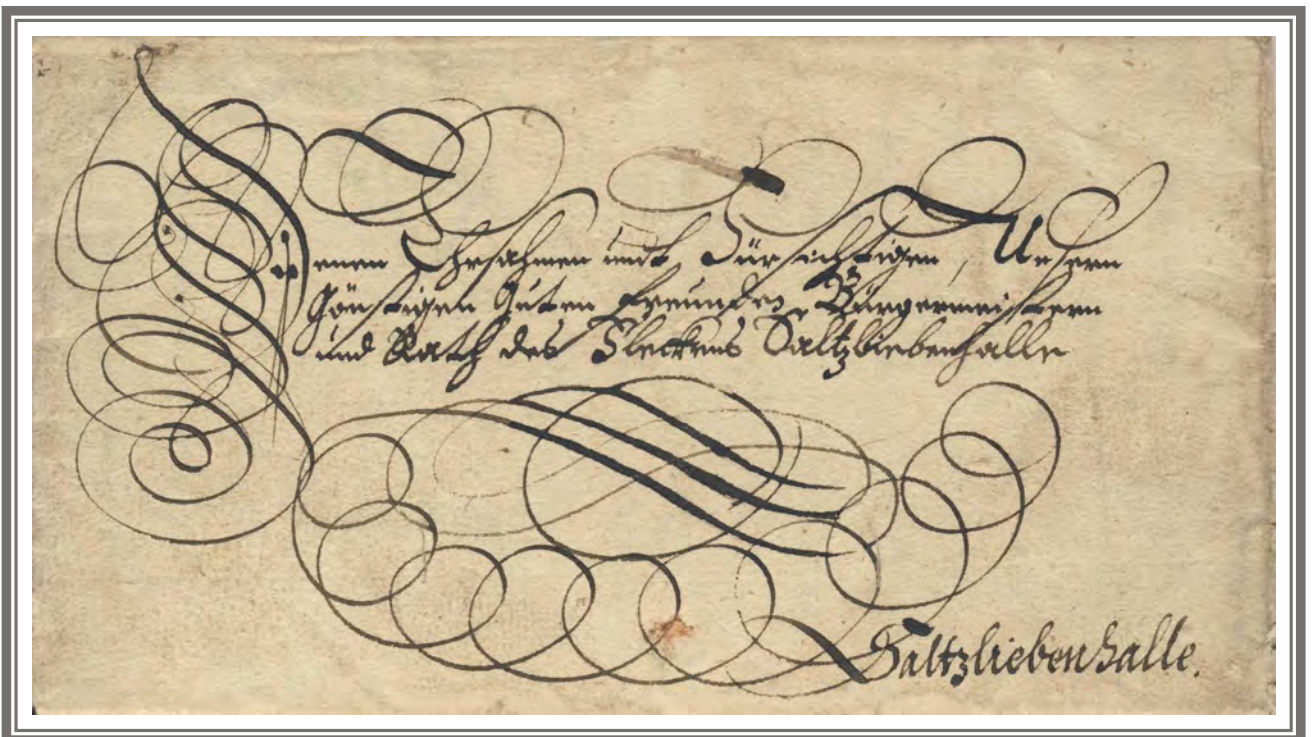 Denen Ehrsahmen undt Fürsichtigen, Unsern
Günstigen Guten Freunden, Bürgermeistern
und Rath des Fleckens Saltzliebenhalle
Saltzliebenhalle.